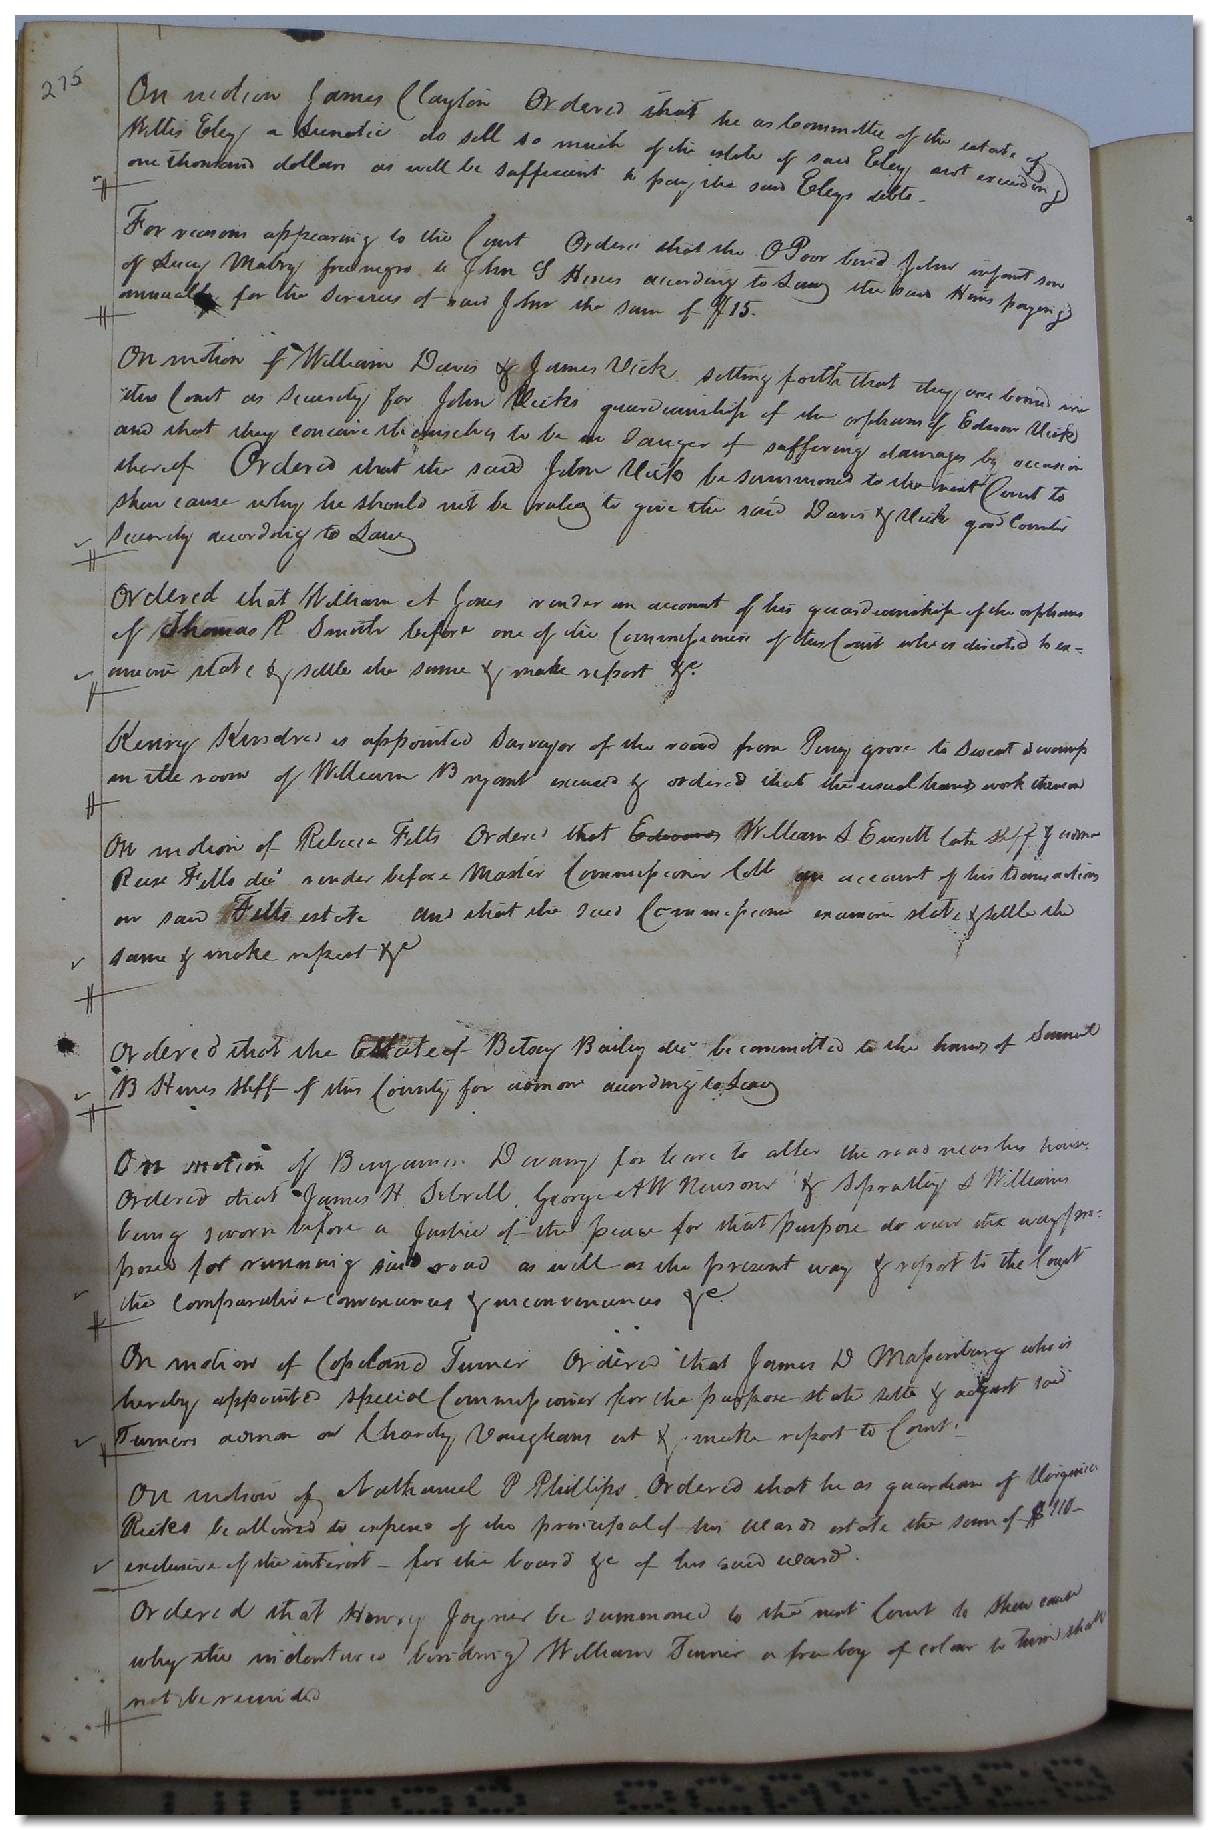 275
On motion James Clayton Ordered that he as Committee of the estate of
Willis Eley a Lunatic do sell so much of the estate of said Eley not exceeding
one thousand dollars as will be sufficient to pay the said Eleys debts.
For reasons appearing to the Court Ordered that the O Poor bind John infant son
of Lucy Mabry free negro to John S Hines according to Law the said Hines paying
annually for the services of said John the sum of $15.
On motion of William Davis & James Vick setting forth that they are bound in
this Court as Security for John Vicks guardianship of the orphans of Edwin Vick
and that they conceive themselves to be in danger of suffering damages by occasion
thereof Ordered that the said John Vick be summoned to the next Court to
shew cause why he should not be ruled to give the said Davis & Vick good Counter
Security according to Law
Ordered that William A Jones render an account of his guardianship of the orphans
of Thomas P Smith before one of the Commissioners of this Court who is directed to ex=
amine state & settle the same & make report &c.
Henry Kindred is appointed Surveyor of the road from Piney grove to Sweat Swamp
in the room of William Bryant excused & ordered that the usual hands work thereon
On motion of Rebecca Felts Ordered that Edward William S Everett late shff & admr
Reese Felts decd render before Master Commissioner Cobb an account of his transactions
on said Felts estate and that the said Commissioner examine state & settle the
same & make report &c
Ordered that the Estate of Betsey Bailey decd be committed to the hands of Samuel
B Hines Shff of this County for admon according to Law
On motion of Benjamin Devany for leave to alter the road near his house
Ordered that James H Sebrell George A W Newsom & Spratley S Williams
being sworn before a Justice of the peace for that purpose do view the way pro=
posed for running said road as well as the present way & report to the Court
the comparative conveniences & inconveniences &c.
On motion of Copeland Turner Ordered that James D Massenburg who is
hereby appointed special Commissioner for the purpose state settle & adjust said
Turners admon on Chardy Vaughans est & make report to Court.
On motion of Nathaniel P Phillips Ordered that he as guardian of Virginia
Ricks be allowed to expend of the principal of his wards estate the sum of $110
exclusive of the interest - for the board &c of his said ward.
Ordered that Henry Joyner be summoned to the next Court to Shew cause
why the indentures binding William Turner a free boy of colour to him shall
not be recinded